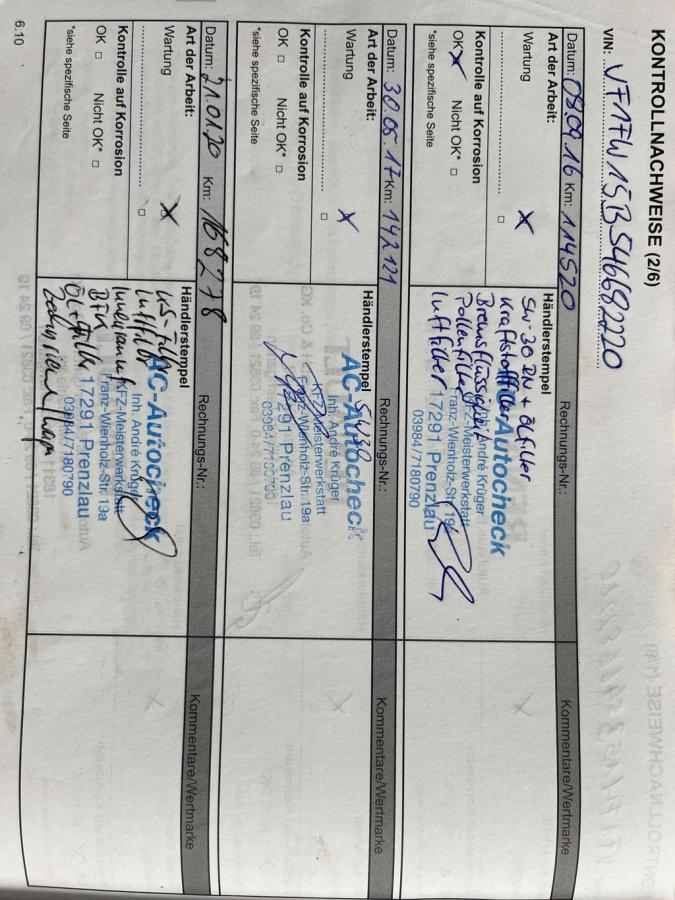 KONTROLLNACHWEISE (2/6)
VIN: VF17W15B546682220
Datum: 08.09.16 Km: 114520
Rechnungs-Nr.:
Kommentare/Wertmarke
Art der Arbeit:
Wartung
Kontrolle auf Korrosion
OK Nicht OK*
*siehe spezifische Seite
Händlerstempel
5W-30 DN + Ölfilter
Kraftstofffilter
Bremsflüssigkeit
Pollenfilter
Luftfilter
AC-Autocheck
Inh. André Krüger
KFZ-Meisterwerkstatt
Franz-Wienholz-Str. 19a
17291 Prenzlau
03984/7180790
Datum: 30.05.17 Km: 142121
Rechnungs-Nr.:
Kommentare/Wertmarke
Art der Arbeit:
Wartung
Kontrolle auf Korrosion
OK Nicht OK*
*siehe spezifische Seite
Händlerstempel
5W30
AC-Autocheck
Inh. André Krüger
KFZ-Meisterwerkstatt
Franz-Wienholz-Str. 19a
17291 Prenzlau
03984/7180790
Datum: 21.01.20 Km: 168278
Rechnungs-Nr.:
Kommentare/Wertmarke
Art der Arbeit:
Wartung
Kontrolle auf Korrosion
OK Nicht OK*
*siehe spezifische Seite
Händlerstempel
KS-Filter
Luftfilter
Innenraumf
BFK
Öl + Filter
AC-Autocheck
Inh. André Krüger
KFZ-Meisterwerkstatt
Franz-Wienholz-Str. 19a
17291 Prenzlau
03984/7180790
6.10